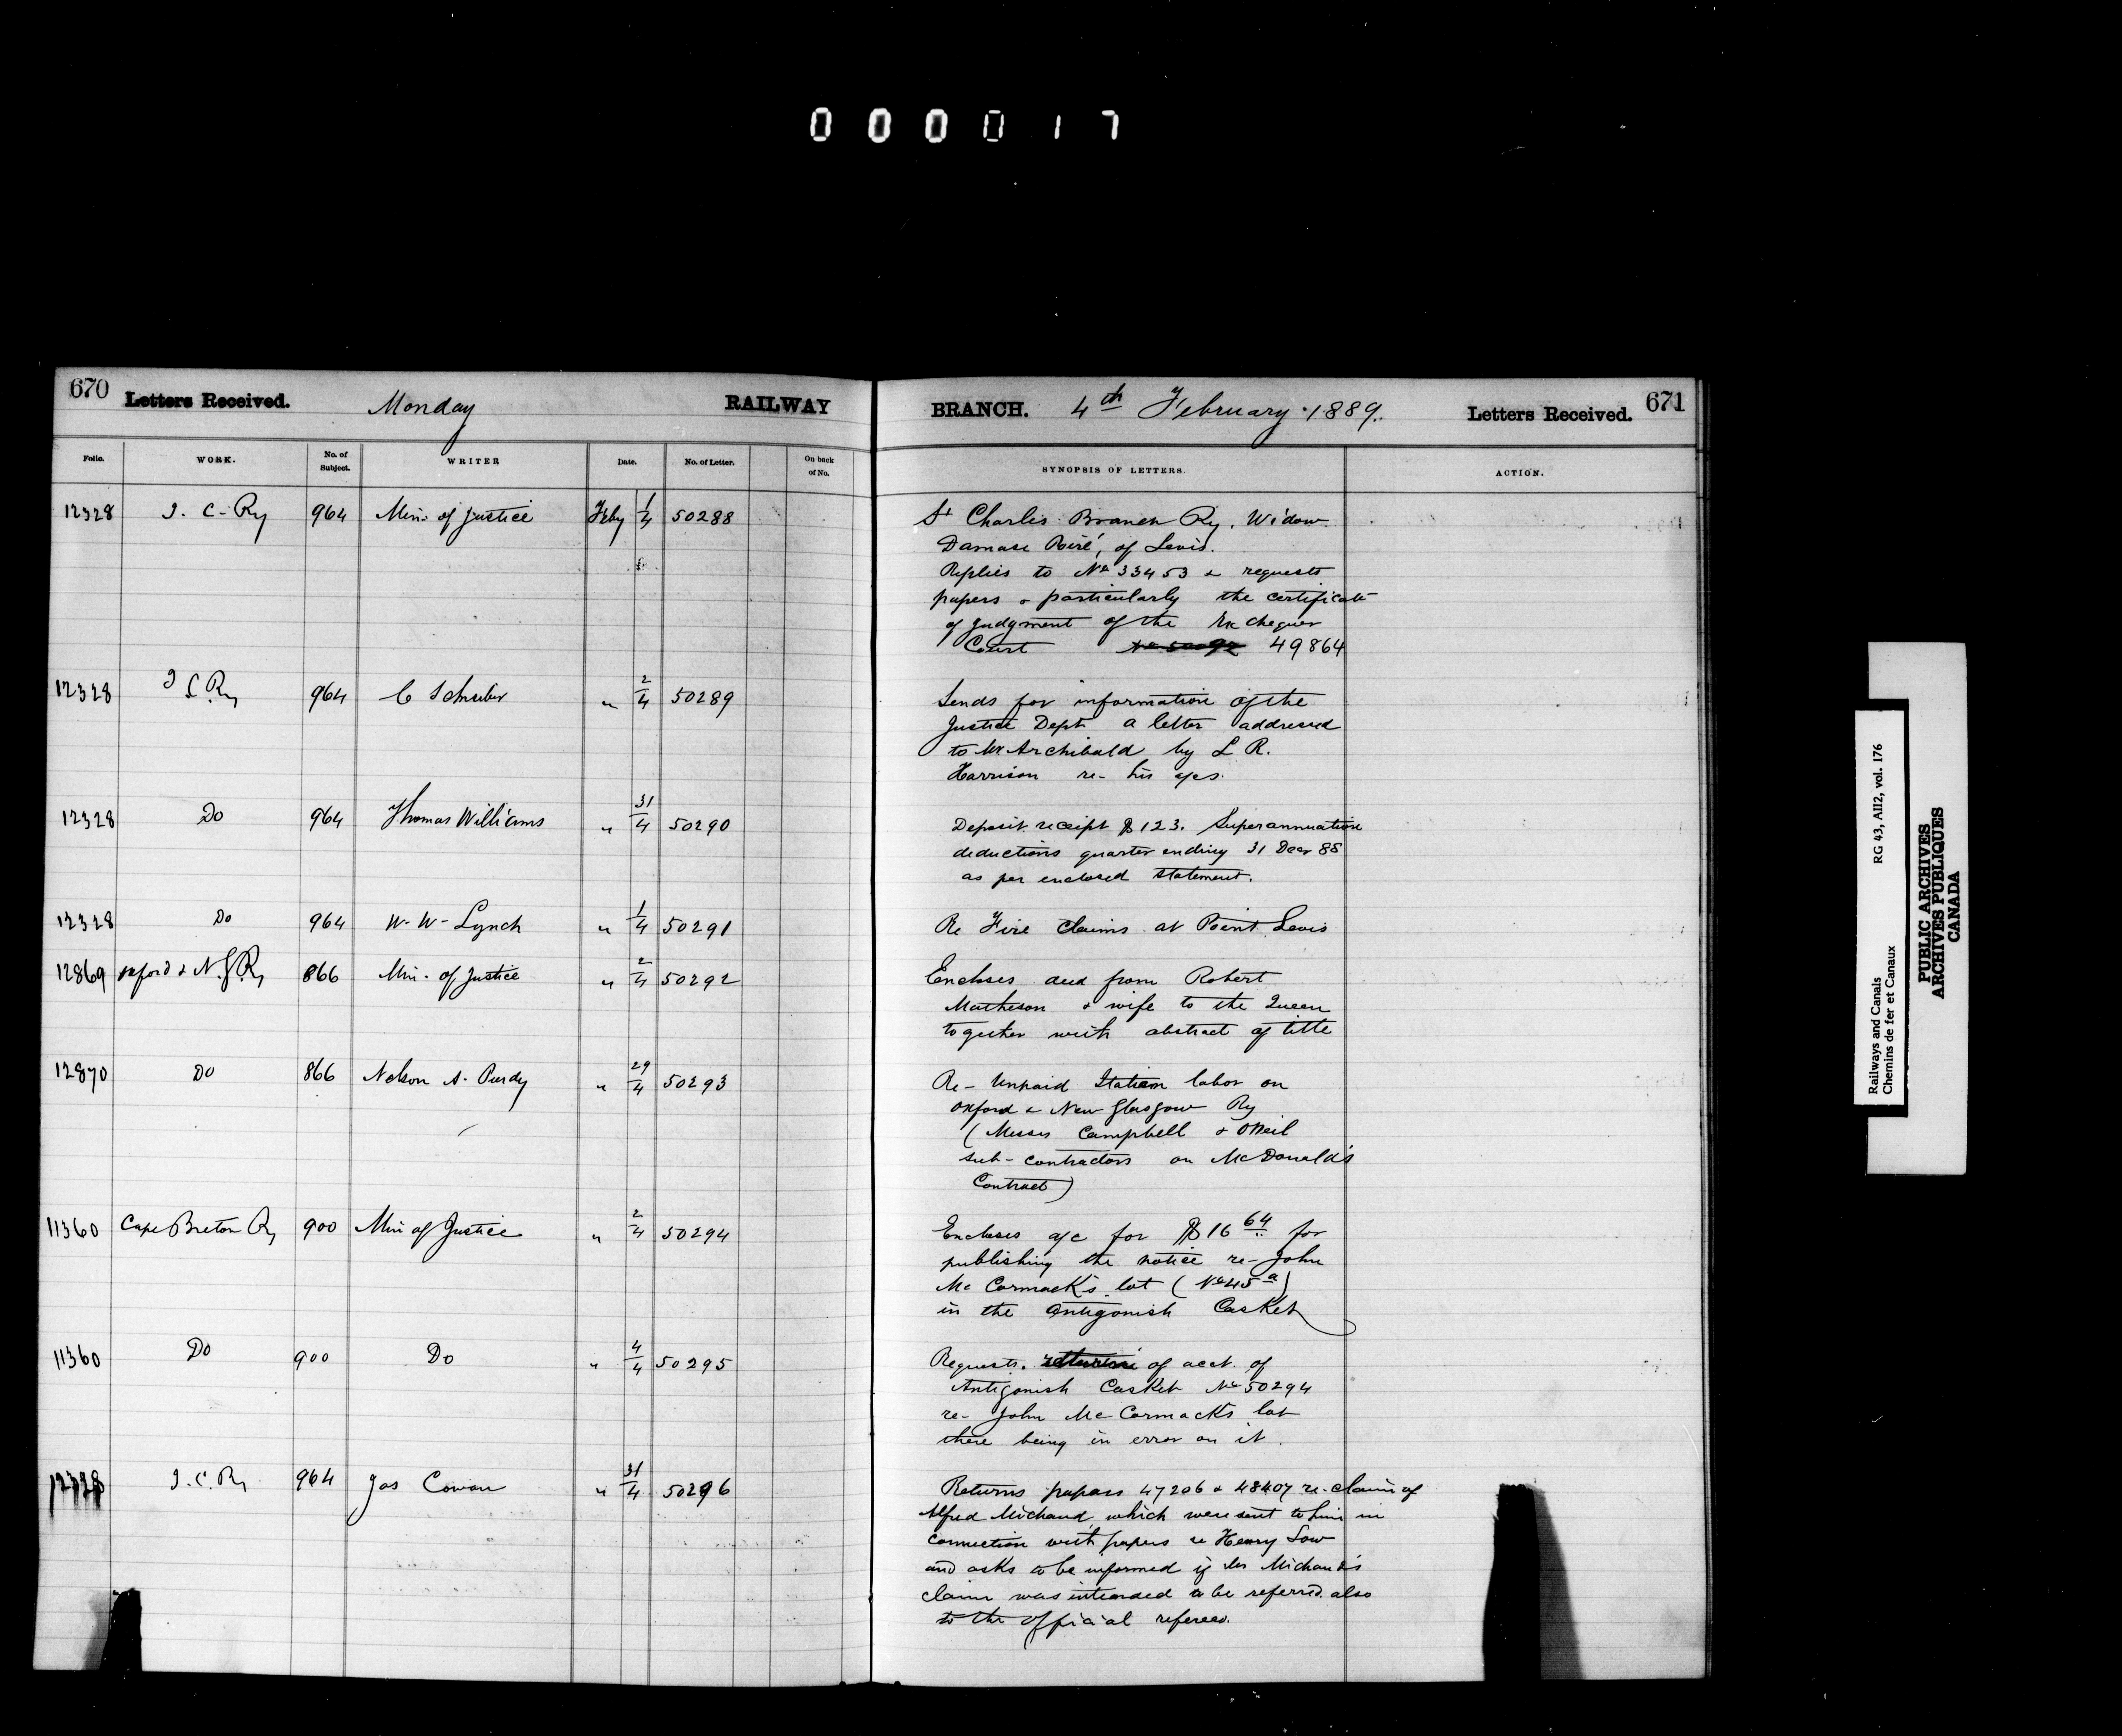 000017
670 Letters Received. Monday RAILWAY
BRANCH. 4th February 1889. Letters Received. 671
Folio. WORK. No. of Subject. WRITER Date. No. of Letter. On back of No.
SYNOPSIS OF LETTERS. ACTION.
12328 I. C. Ry 964 Min. of Justice Feby 1/4 50288
St Charles Branch Ry. Widow
Damase of Levis.
Replies to No 33453 & requests
papers & particularly the certificate
of judgment of the Exchequer
Court 49864
12328 I C Ry 964 C Schreiber " 2/4 50289
Sends for information of the
Justice Dept a letter addressed
to Mr Archibald by L R.
Harrison re- his a/cs.
12328 Do 964 Thomas Williams " 31/4 50290
Deposit receipt $123. Superannuation
deductions quarter ending 31 Decr 88
as per enclosed statement.
12328 Do 964 W- W- Lynch " 1/4 50291
Re Fire Claims at Point Levis
12869 Oxford & N. G. Ry 866 Min. of Justice " 2/4 50292
Encloses deed from Robert
Matheson & wife to the Queen
together with abstract of title
12870 Do 866 Nelson A. Purdy " 29/4 50293
Re- Unpaid Station labor on
Oxford & New Glasgow Ry
(Messrs Campbell & ONeil
sub-contractors on McDonald's
Contract)
11360 Cape Breton Ry 900 Min of Justice " 2/4 50294
Encloses a/c for $16 64 for
publishing the notice re- John
Mc Cormack's lot (No 45a)
in the Antigonish Casket
11360 Do 900 Do " 4/4 50295
Requests return of acct. of
Antigonish Casket No 50294
re- John Mc Cormack's lot
there being in error on it.
12328 I. C. Ry 964 Jas Cowan " 31/4 50296
Returns papers 47206 & 48407 re- claim of
Alfred Michaud, which were sent to him in
connection with papers re Henry Low
and asks to be informed if Mr Michaud's
claim was intended to be referred also
to the official referees.
Railways and Canals RG 43, AII2, vol. 176
Chemins de fer et Canaux
PUBLIC ARCHIVES
ARCHIVES PUBLIQUES
CANADA